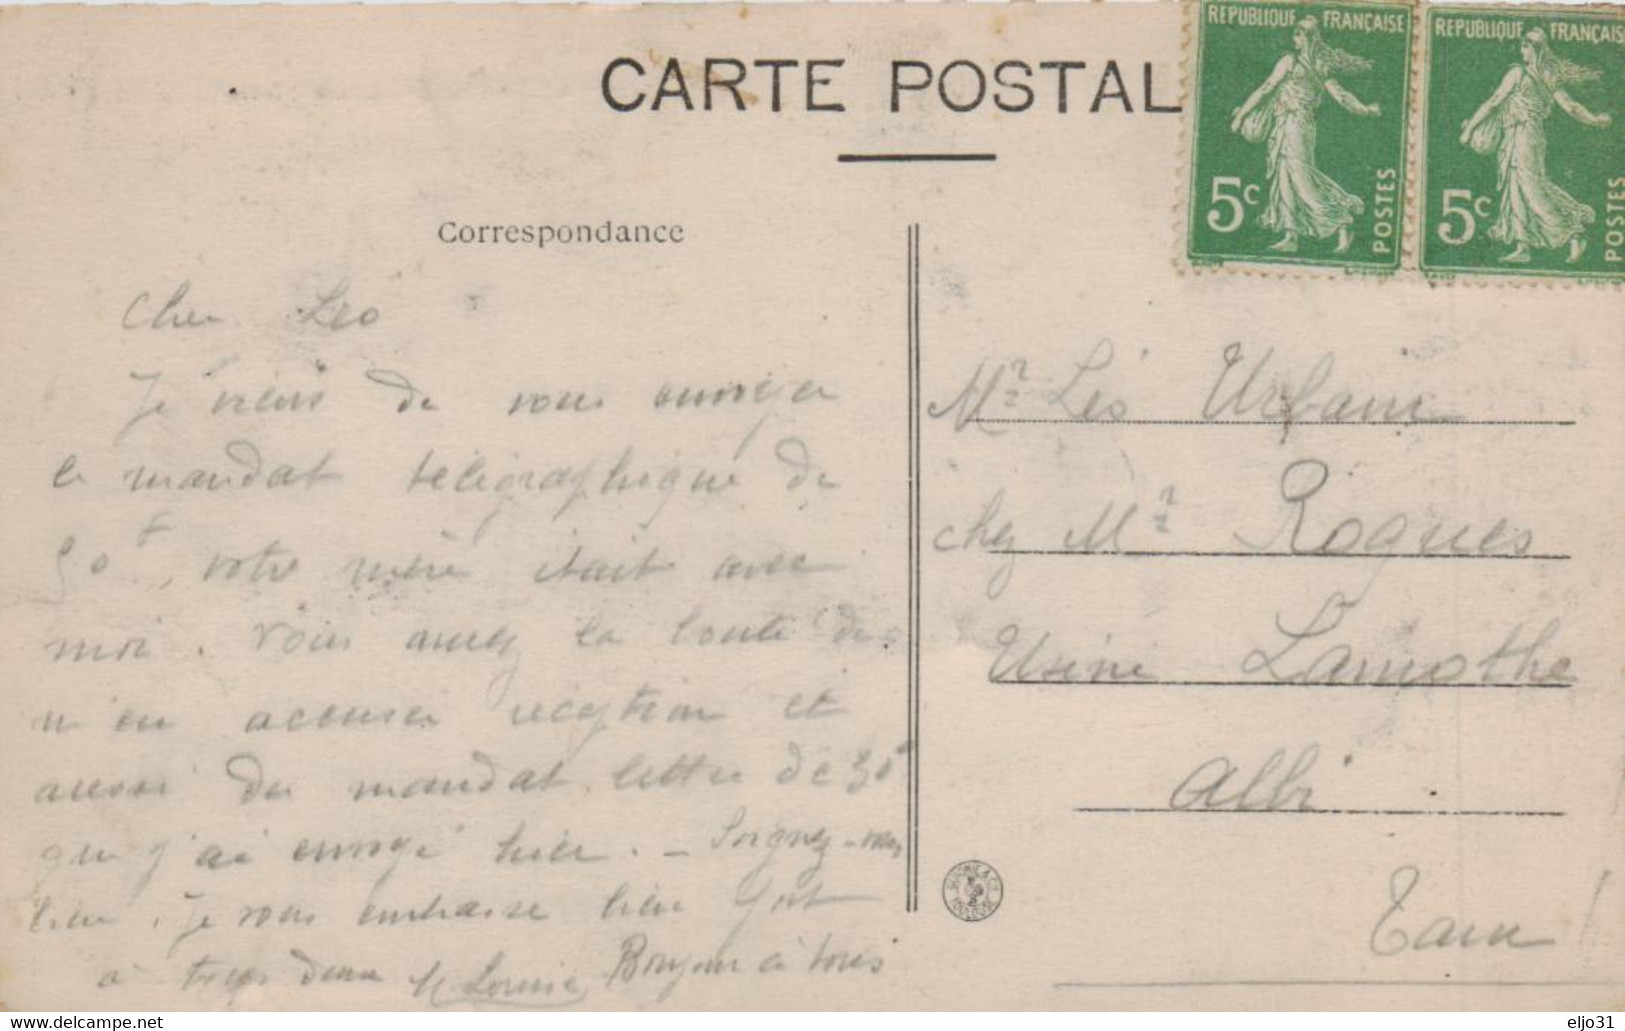 CARTE POSTAL
REPUBLIQUE FRANÇAISE
5c
POSTES
REPUBLIQUE FRANÇAIS
5c
POSTES
Correspondance
Cher Léo
Je viens de vous envoyer
le mandat télégraphique de
50f, votre mère était avec
moi. Vous aurez la bonté de
m'en accuser réception et
aussi du mandat lettre de 30f
que j'ai envoyé hier. – Soignez-vous
bien. Je vous embrasse bien fort
à tous deux Louise Bonjour à tous
Mr Léo Urbain
chez Mr Rogues
Usine Lamothe
Albi
Tarn
eljo31